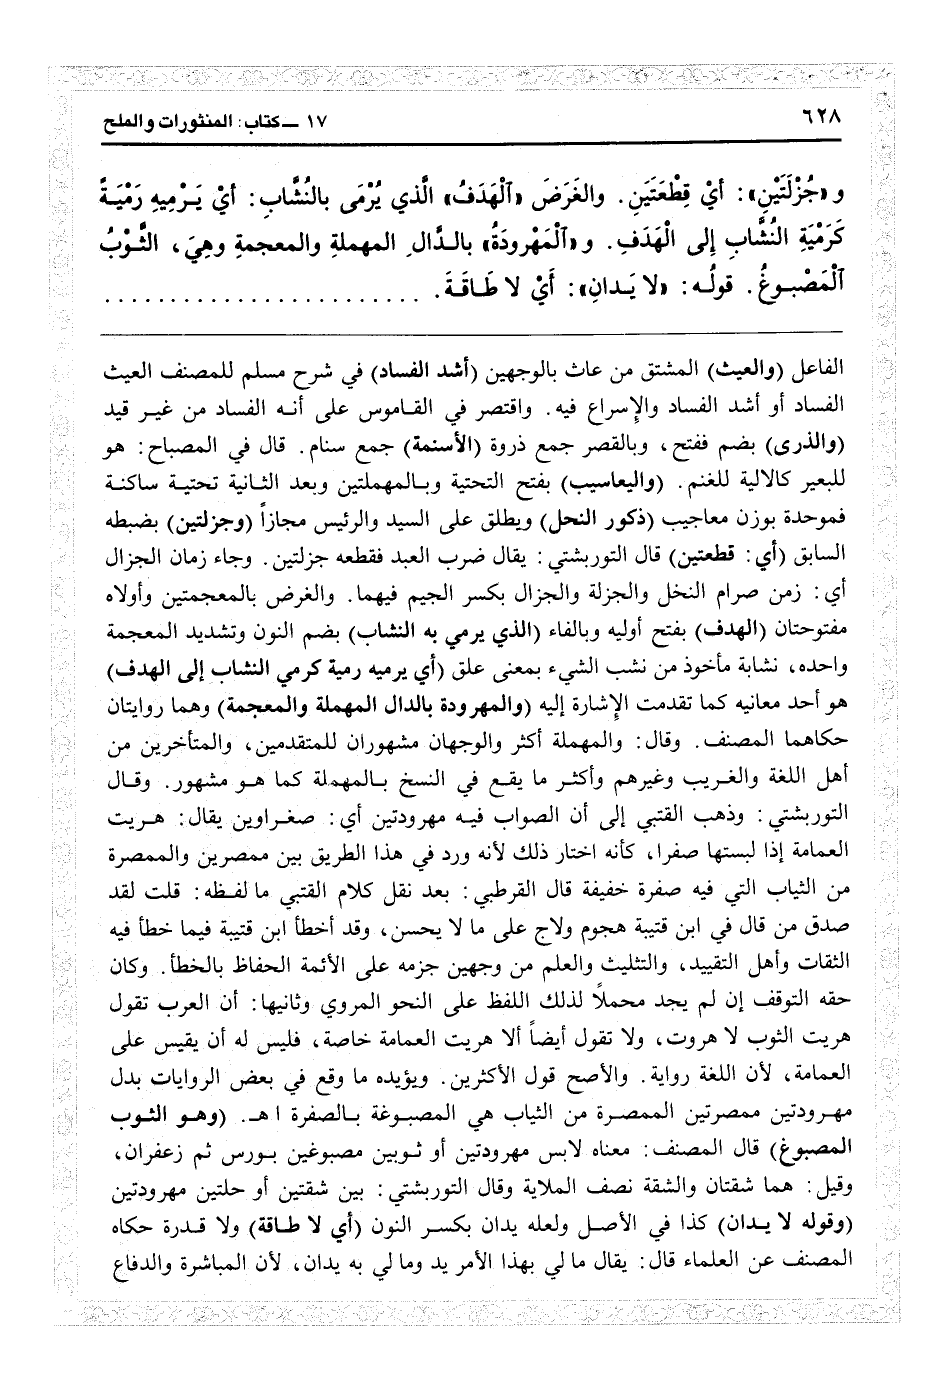 ٦٢٨
١٧ ــ كتاب: المنثورات والملح
و «جُزْلَتَيْنِ»: أيْ قِطْعَتَينِ. والغَرَضَ «اَلْهَدَفُ» الَّذي يُرْمَى بالنُشَّابِ: أيْ يَـرْمِيهِ رَمْيَـةً
كَرَمْيَةِ النُشَّابِ إلى الْهَدَفِ. و «اَلْمَهْرودَةُ» بالـدَّالِ المهملةِ والمعجمةِ وهِيَ، الثَّـوْبُ
اَلْمَصْبـوغُ. قولُـه: «لا يَـدانِ»: أَيْ لا طَـاقَـةَ. . . . . . . . . . . . . . . . . . . . . . .
الفاعل (والعيث) المشتق من عاث بالوجهين (أشد الفساد) في شرح مسلم للمصنف العيث
الفساد أو أشد الفساد والإسراع فيه. واقتصر في القـاموس على أنـه الفساد من غيـر قيد
(والذرى) بضم ففتح، وبالقصر جمع ذروة (الأسنمة) جمع سنام. قال في المصباح: هو
للبعير كالالية للغنم. (واليعاسيب) بفتح التحتية وبـالمهملتين وبعد الثـانية تحتيـة ساكنـة
فموحدة بوزن معاجيب (ذكور النحل) ويطلق على السيد والرئيس مجازاً (وجزلتين) بضبطه
السابق (أي: قطعتين) قال التوربشتي: يقال ضرب العبد فقطعه جزلتين. وجاء زمان الجزال
أي: زمن صرام النخل والجزلة والجزال بكسر الجيم فيهما. والغرض بالمعجمتين وأولاه
مفتوحتان (الهدف) بفتح أوليه وبالفاء (الذي يرمي به النشاب) بضم النون وتشديد المعجمة
واحده، نشابة مأخوذ من نشب الشيء بمعنى علق (أي يرميه رمية كرمي النشاب إلى الهدف)
هو أحد معانيه كما تقدمت الإشارة إليه (والمهرودة بالدال المهملة والمعجمة) وهما روايتان
حكاهما المصنف. وقال: والمهملة أكثر والوجهان مشهوران للمتقدمين، والمتأخرين من
أهل اللغة والغـريب وغيرهم وأكثـر ما يقـع في النسخ بـالمهملة كما هـو مشهور. وقـال
التوربشتي: وذهب القتبي إلى أن الصواب فيـه مهرودتين أي: صفـراوين يقال: هـريت
العمامة إذا لبستها صفرا، كأنه اختار ذلك لأنه ورد في هذا الطريق بين ممصرين والممصرة
من الثياب التي فيه صفرة خفيفة قال القرطبي: بعد نقل كلام القتبي ما لفـظه: قلت لقد
صدق من قال في ابن قتيبة هجوم ولاج على ما لا يحسن، وقد أخطأ ابن قتيبة فيما خطأ فيه
الثقات وأهل التقييد، والتثليث والعلم من وجهين جزمه على الأئمة الحفاظ بالخطأ. وكان
حقه التوقف إن لم يجد محملاً لذلك اللفظ على النحو المروي وثانيها: أن العرب تقول
هريت الثوب لا هروت، ولا تقول أيضاً ألا هريت العمامة خاصة، فليس له أن يقيس على
العمامة، لأن اللغة رواية. والأصح قول الأكثرين. ويؤيده ما وقع في بعض الروايات بدل
مهـرودتين ممصرتين الممصـرة من الثياب هي المصبـوغة بـالصفرة ا هـ. (وهـو الثـوب
المصبوغ) قال المصنف: معناه لابس مهرودتين أو ثـوبين مصبوغين بـورس ثم زعفران،
وقيل: هما شقتان والشقة نصف الملاية وقال التوربشتي: بين شقتين أو حلتين مهرودتين
(وقوله لا يـدان) كذا في الأصـل ولعله يدان بكسـر النون (أي لا طاقة) ولا قـدرة حكاه
المصنف عن العلماء قال: يقال ما لي بهذا الأمر يد وما لي به يدان، لأن المباشرة والدفاع